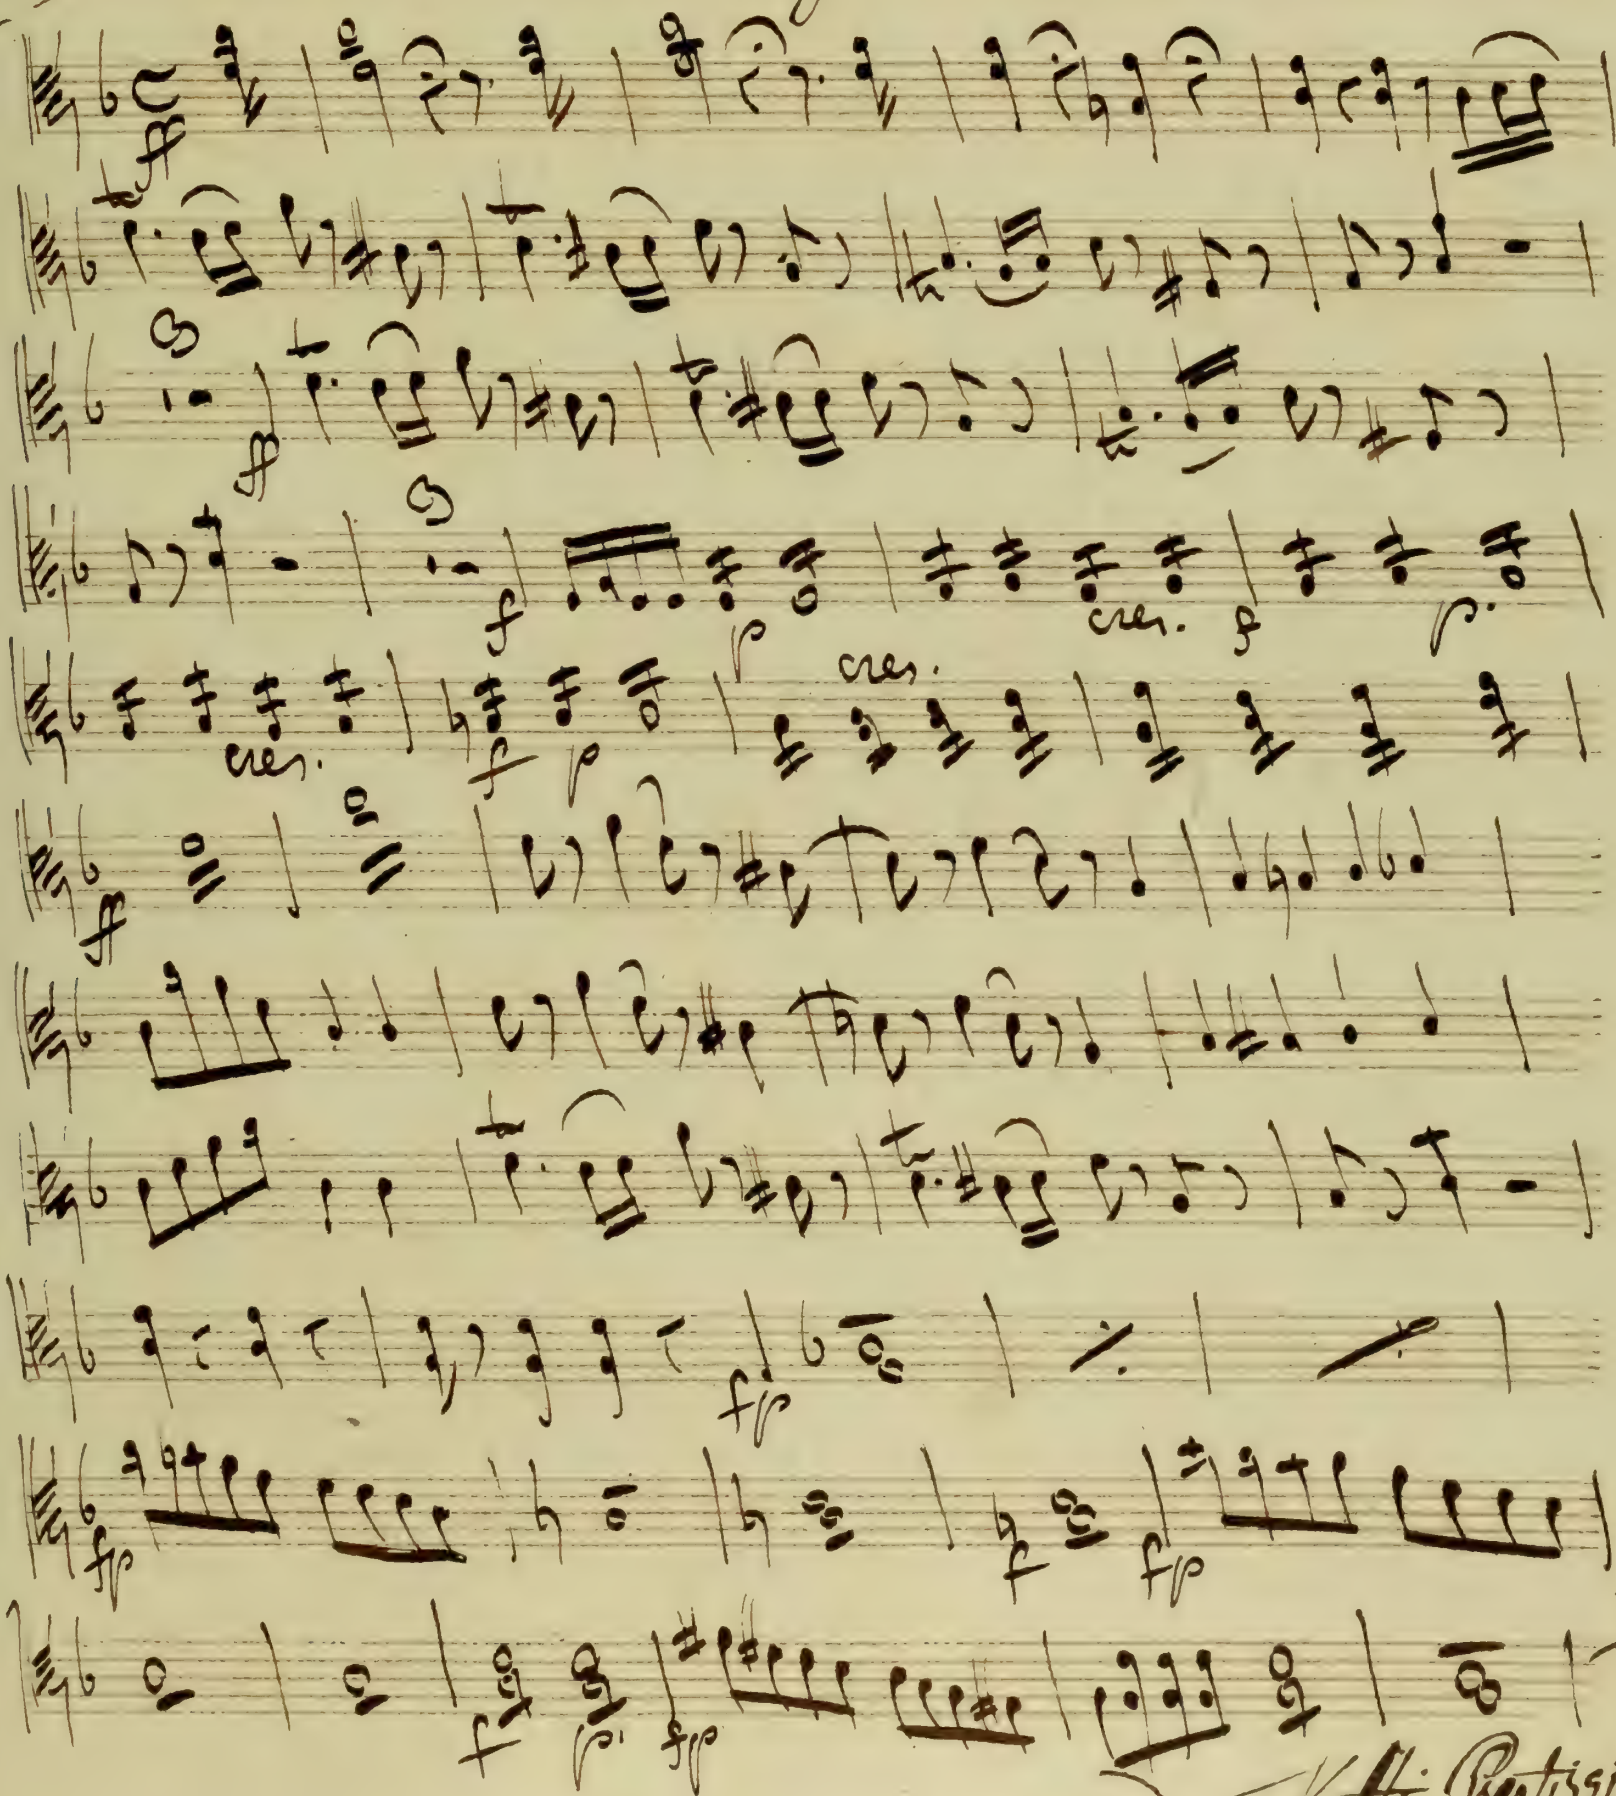 ff
3
ff
3
f p cres. f p.
cres. f p cres.
ff
fp
fp f fp
f p. fp